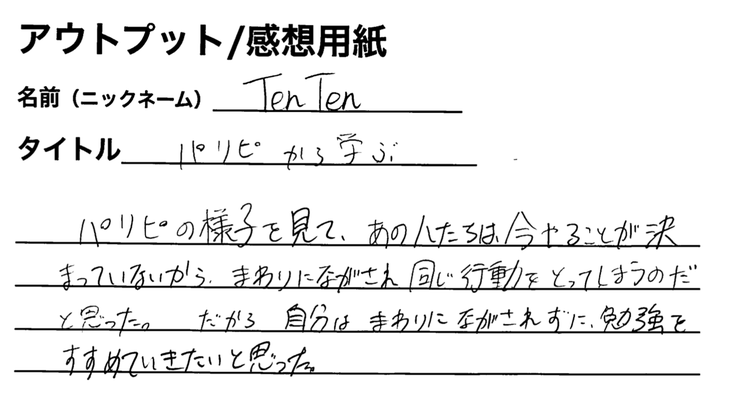 アウトプット/感想用紙
名前（ニックネーム） TenTen
タイトル パリピから学ぶ
パリピの様子を見て、あの人たちは、今やることが決
まっていないから、まわりにながされ同じ行動をとってしまうのだ
と思った。 だから 自分は まわりにながされずに、勉強を
すすめていきたいと思った。